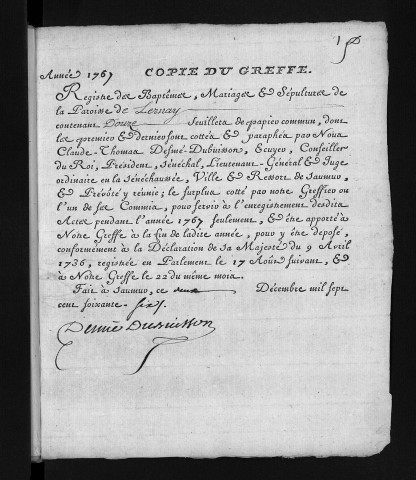 Année 1767 COPIE DU GREFFE.
Registre des Baptêmes, Mariages & Sépultures de
la Paroisse de Lernay
contenant Douze Feuillets de papier commun, dont
les premier & dernier sont cottés & paraphés par Nous
Claude-Thomas Desmé-Dubuisson, Ecuyer, Conseiller
du Roi, Président, Sénéchal, Lieutenant-Général & Juge
ordinaire en la Sénéchaussée, Ville & Ressort de Saumur,
& Prévôté y réunie; le surplus cotté par notre Greffier ou
l'un de ses Commis, pour servir à l'enregistrement desdits
Actes pendant l'année 1767 seulement, & être apporté à
Notre Greffe à la fin de ladite année, pour y être déposé,
conformément à la Déclaration de Sa Majesté du 9 Avril
1736, registrée en Parlement le 17 Août suivant, &
à Notre Greffe le 22 du même mois.
Fait à Saumur, ce deux Décembre mil sept
cent soixante-six.
Desmé Dubuisson